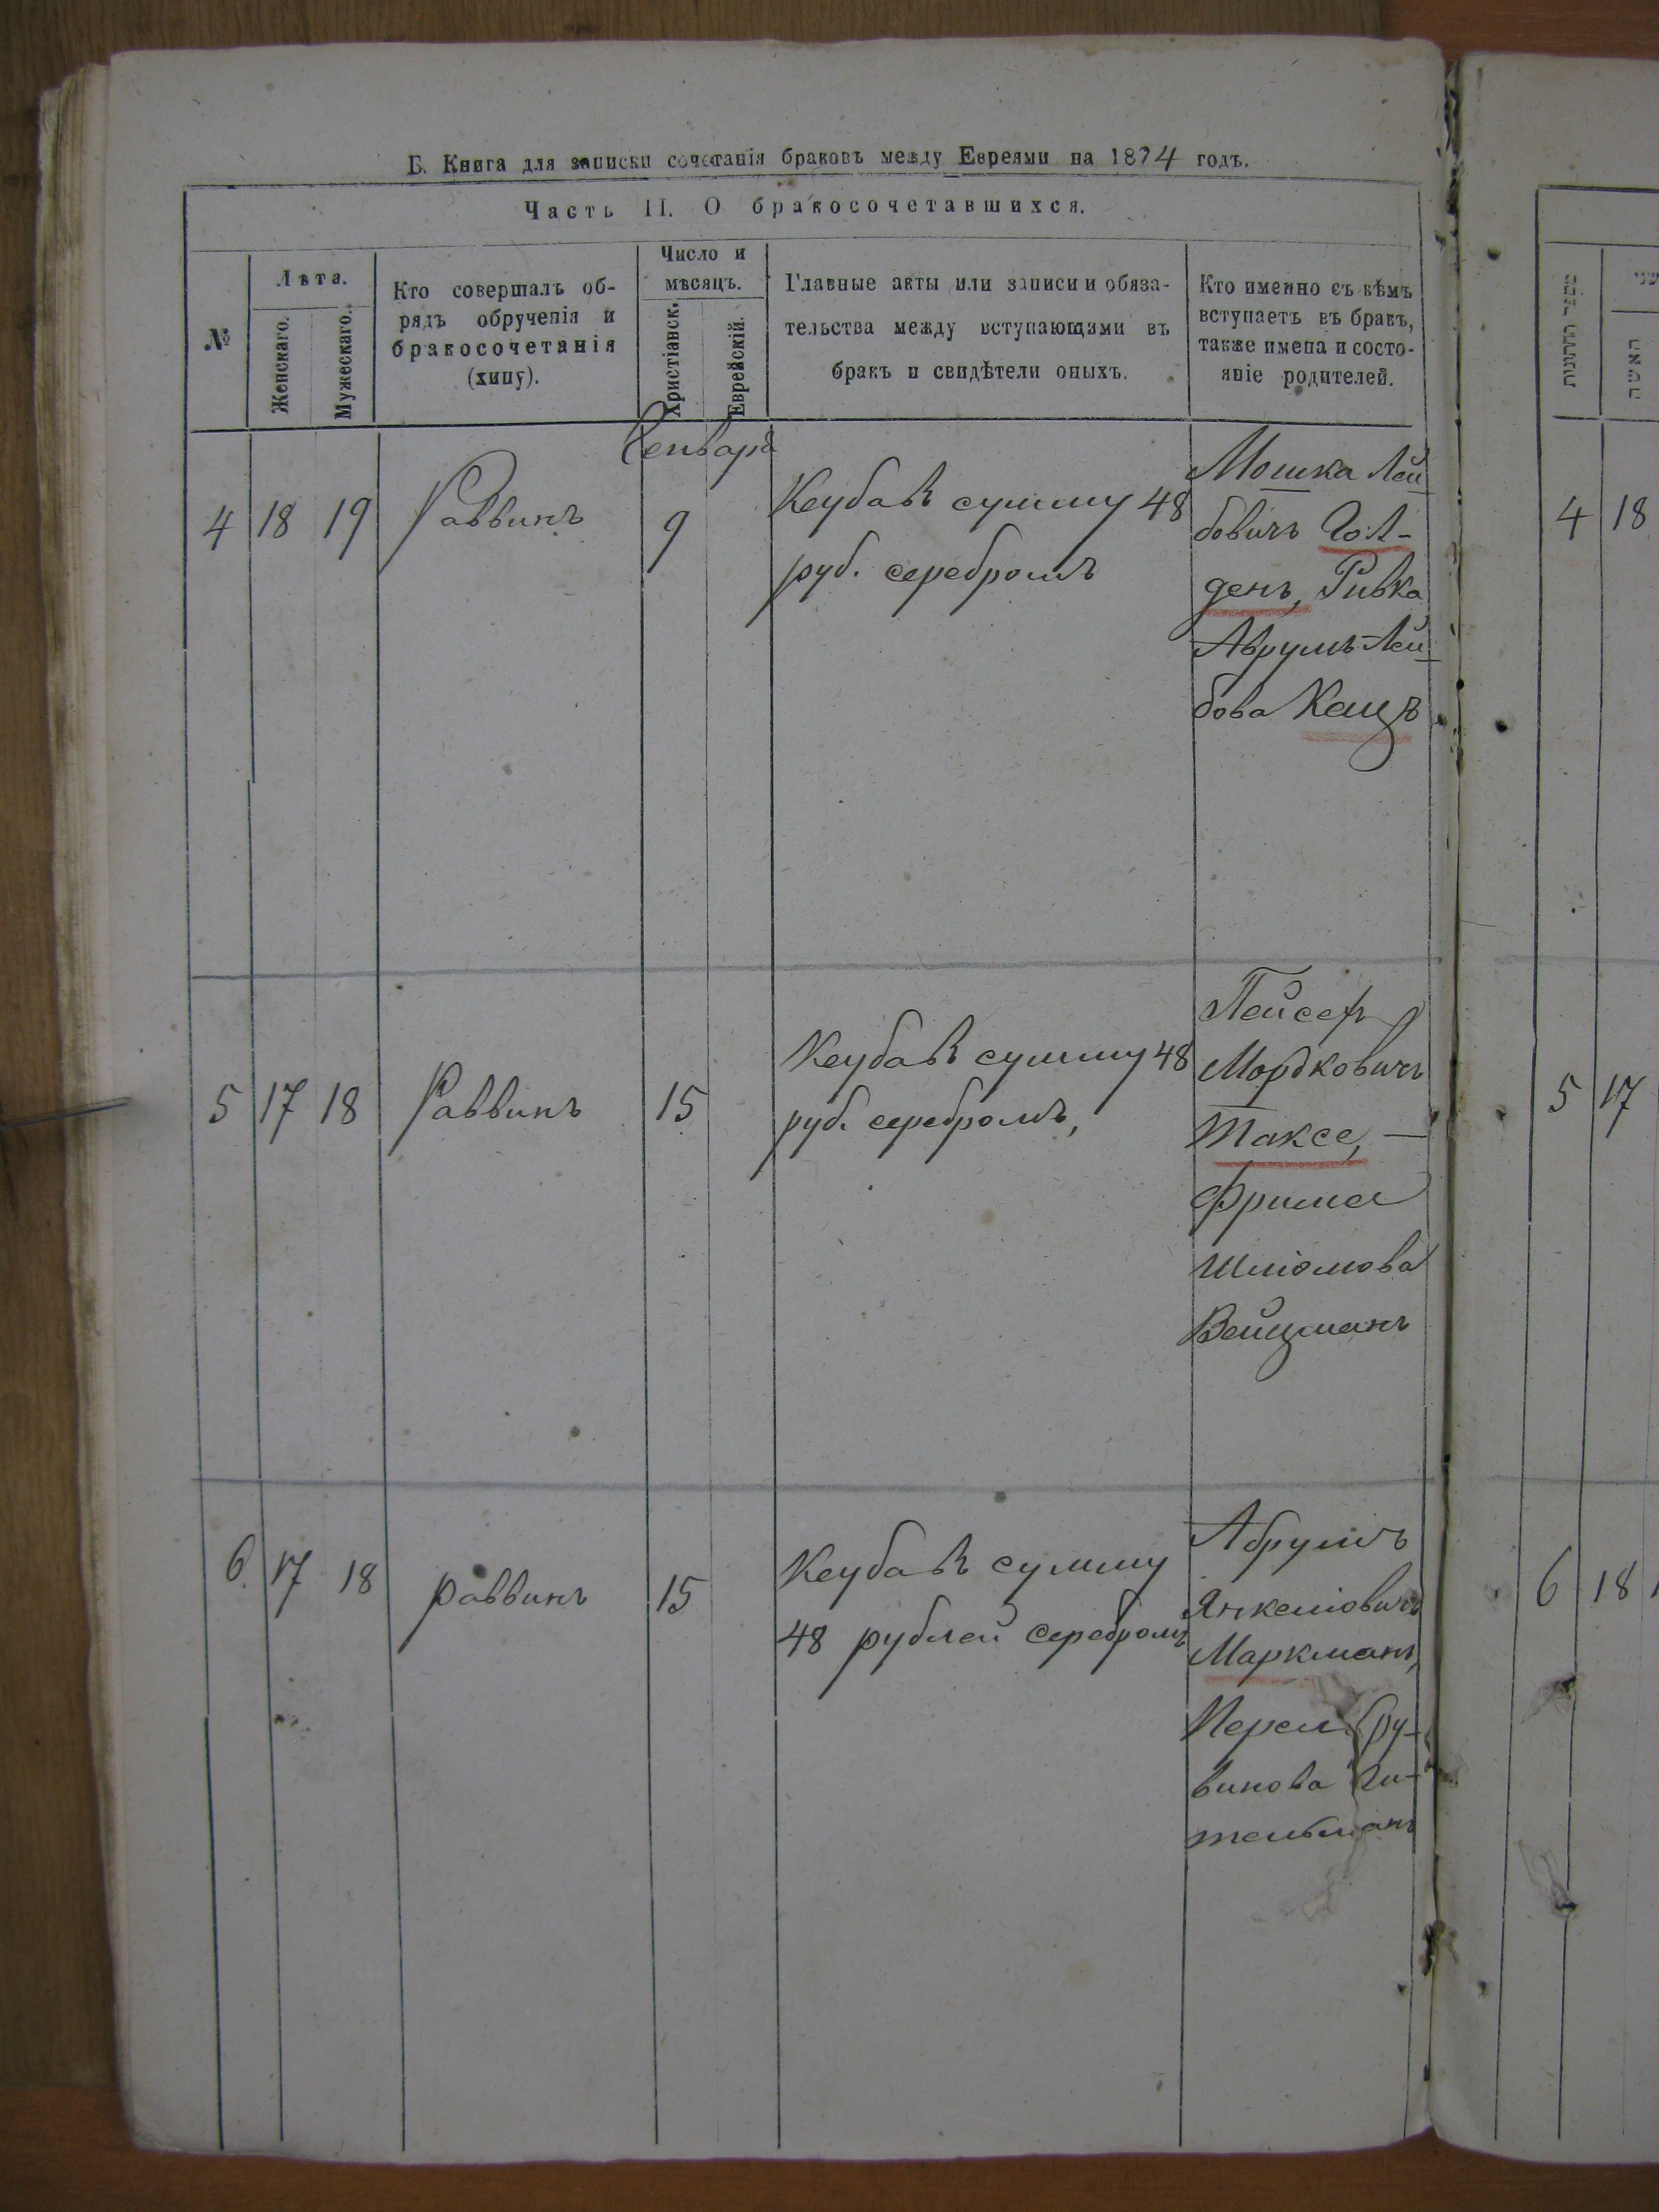 Б. Книга для записки сочетанія браковъ между Евреями на 1874 годъ.
Часть II. О бракосочетавшихся.
№
Лѣта.
Женскаго.
Мужескаго.
Кто совершалъ об-
рядъ обрученія и
бракосочетанія
(хипу).
Число и
мѣсяцъ.
Христіанск.
Еврейскій.
Главные акты или записи и обяза-
тельства между вступающими въ
бракъ и свидѣтели оныхъ.
Кто именно съ кѣмъ
вступаетъ въ бракъ,
также имена и состо-
яніе родителей.
Генваря
4 18 19 Раввинъ 9
Кеуба въ сумму 48
руб. серебромъ
Мошка Лей
бовичъ Гол-
денъ, Ривка
Аврумъ-Лей
бова Кацъ
5 17 18 Раввинъ 15
Кеуба въ сумму 48
руб. серебромъ,
Пейсех
Мордковичъ
Таксе, —
Фрима
Шліомова
Вейцманъ
6 17 18 раввинъ 15
Кеуба въ сумму
48 рублей серебромъ
Абрумъ
Янкеліовичъ
Маркманъ,
Перел Ру-
винова Ги-
тельманъ
האשה
4 18
5 17
6 18